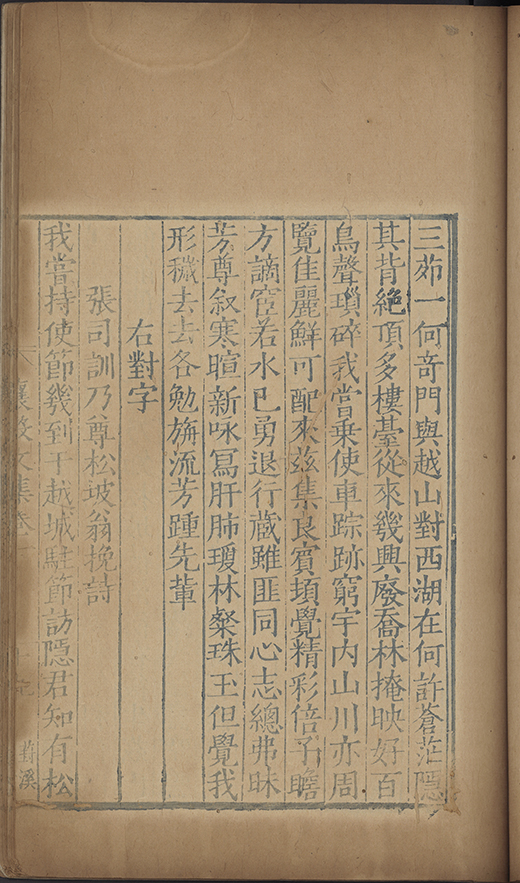 三茆一何奇門與越山對西湖在何許蒼茫隱
其背絶頂多樓臺從來幾興廢喬林掩映好百
鳥聲瑣碎我嘗乗使車踪跡窮宇内山川亦周
覽佳麗鮮可配來兹集良賓頓覺精彩倍予瞻
方謫宦若水已勇退行蔵雖匪同心志總弗昧
芳尊叙寒暄新咏冩肝肺瓊林粲珠玉但覺我
形穢去去各勉旃流芳踵先軰
右對字
張司訓乃尊松坡翁挽詩
我嘗持使節幾到于越城駐節訪隠君知有松
襄毅文集卷